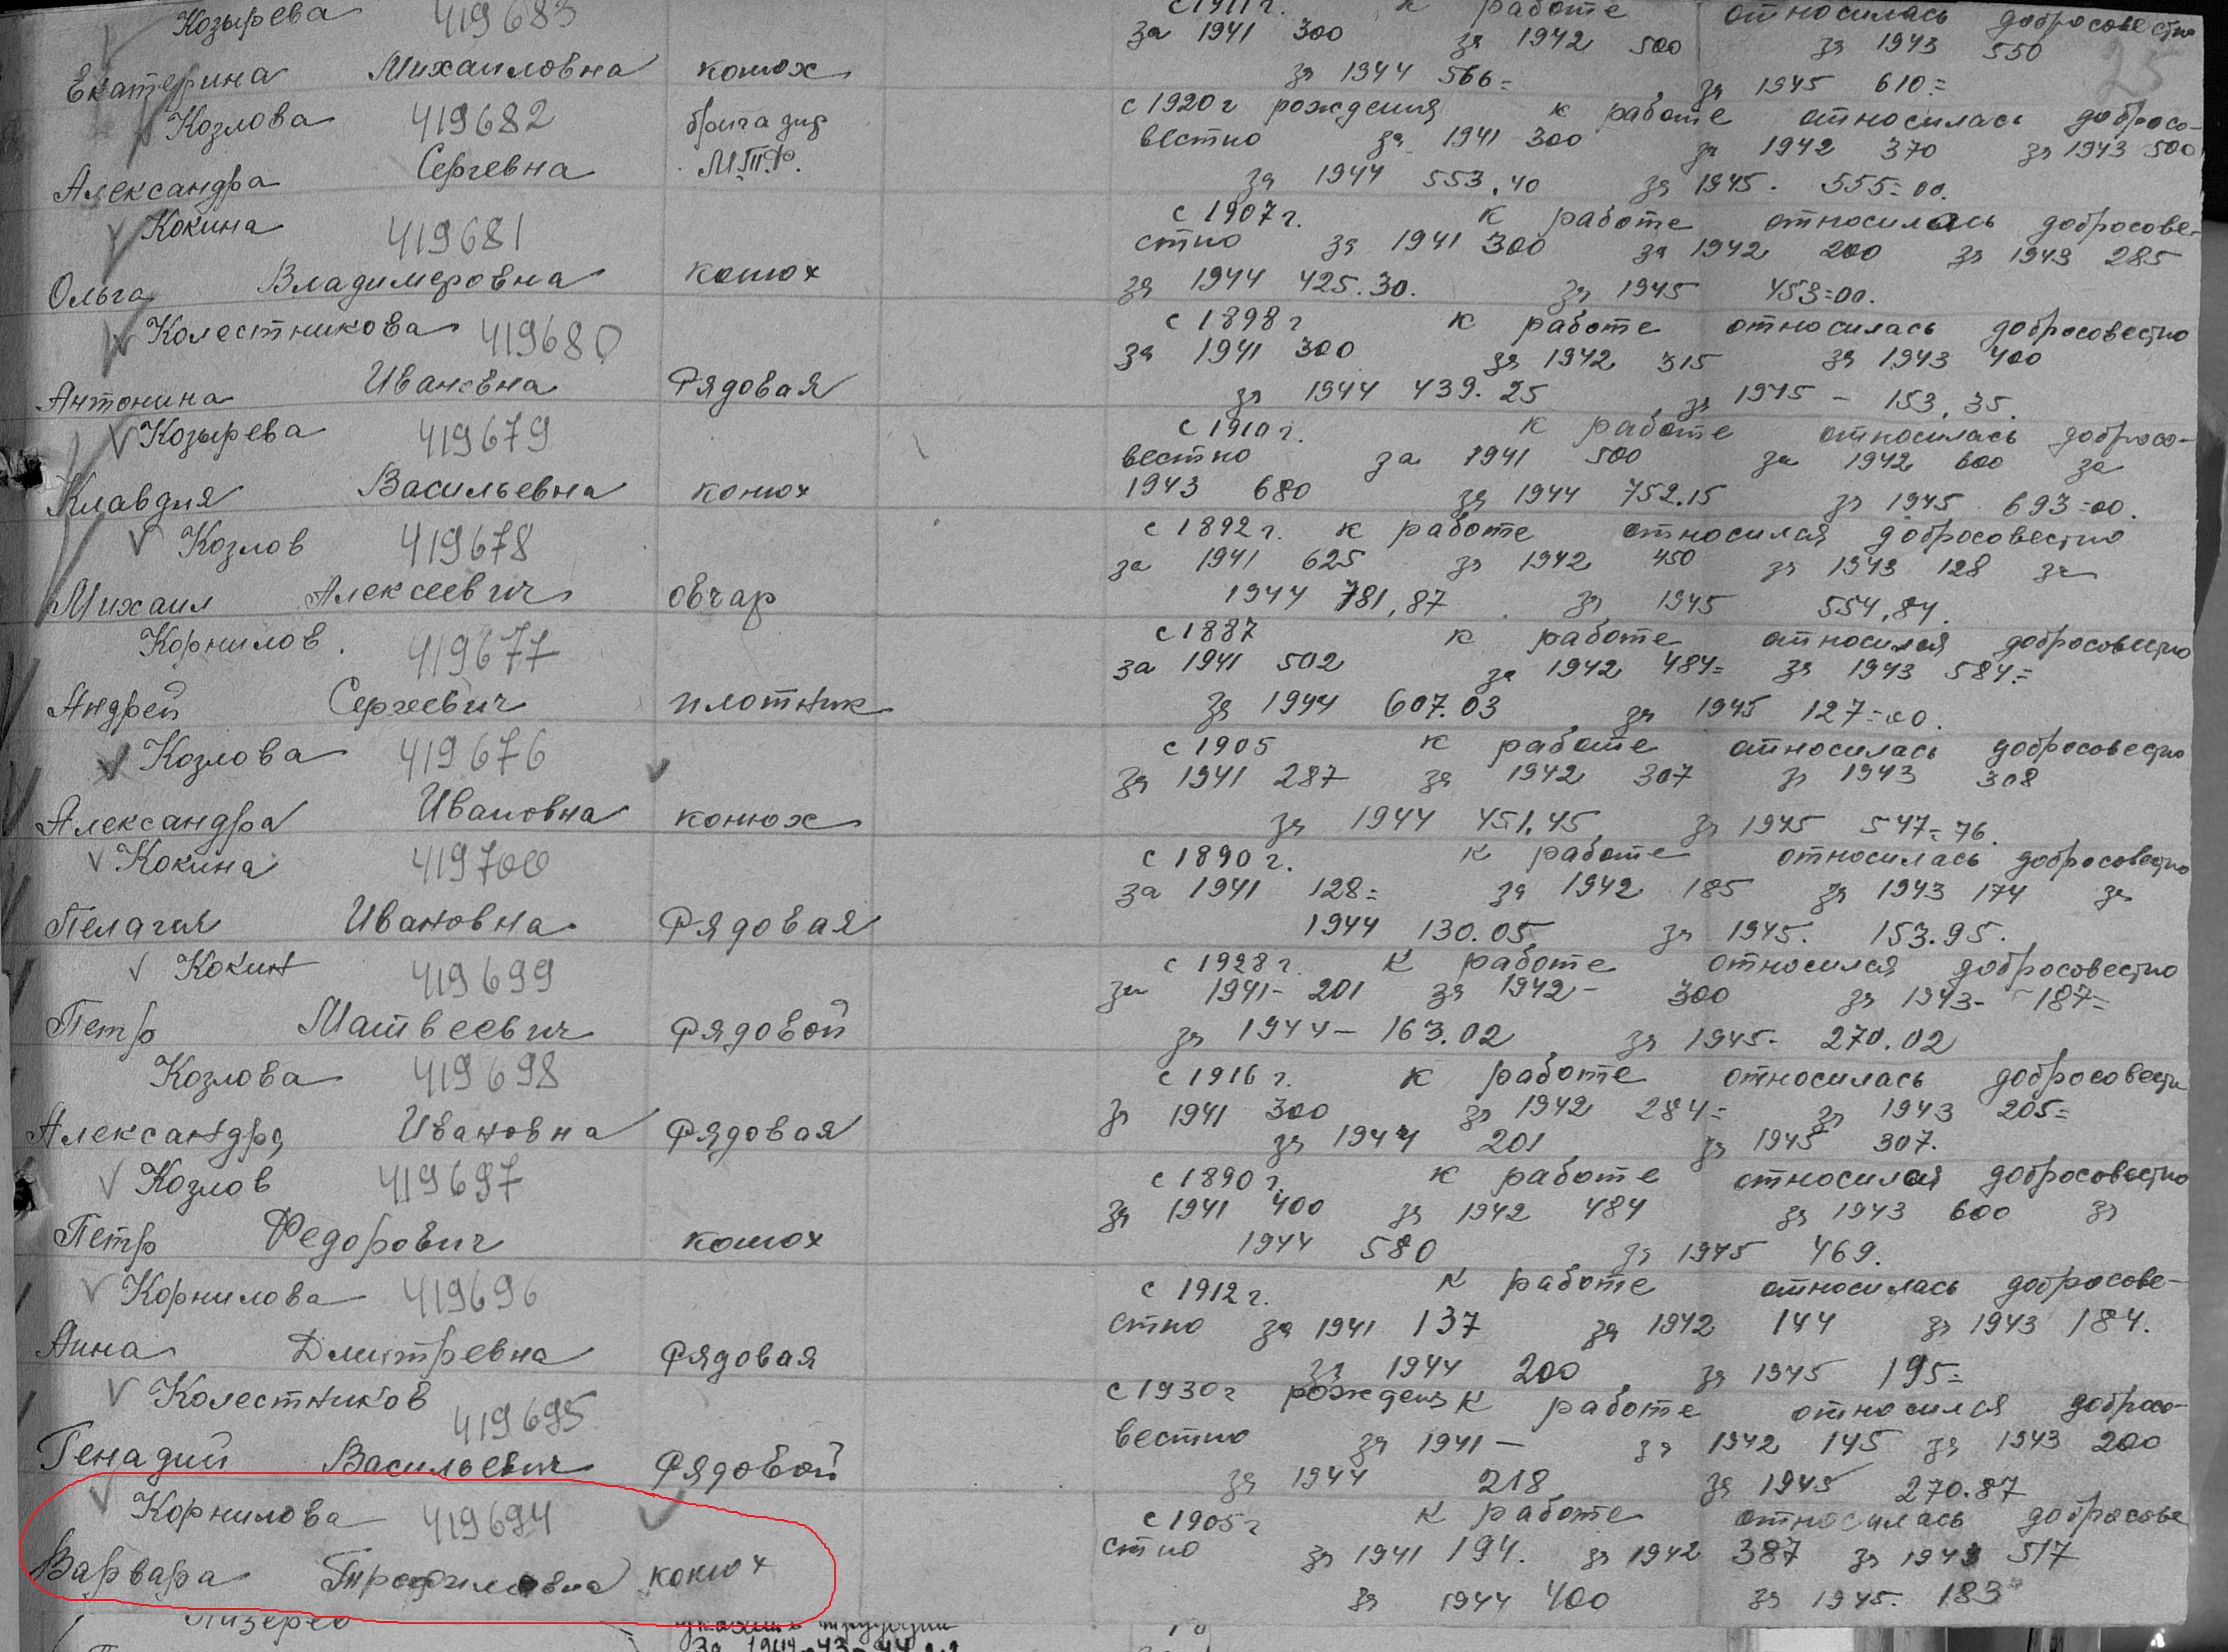 Козырева 419683 с 1911 г. к работе относилась добросовестно
за 1941 300 за 1942 500 за 1943 550
Екатерина Михаиловна конюх за 1944 566= за 1945 610=
25
Козлова 419682 бригадир с 1920 г рождения к работе относилась добросо-
вестно за 1941 300 за 1942 370 за 1943 500
Александра Сергевна М.Т.Ф. за 1944 553,40 за 1945. 555=00.
Кокина 419681 с 1907 г. к работе относилась добросове-
стно за 1941 300 за 1942 200 за 1943 285
Ольга Владимеровна конюх за 1944 425.30. за 1945 453=00.
Колестникова 419680 с 1898 г к работе относилась добросовестно
за 1941 300 за 1942 315 за 1943 400
Антонина Ивановна Рядовая за 1944 439.25 за 1945 - 153,35.
Козырева 419679 с 1910 г. к работе относилась добросо-
вестно за 1941 500 за 1942 600 за
Клавдия Васильевна конюх 1943 680 за 1944 752.15 за 1945 693=00.
Козлов 419678 с 1892 г. к работе относился добросовестно
за 1941 625 за 1942 450 за 1943 128 за
Михаил Алексеевич овчар 1944 781,87 за 1945 554,84.
Корнилов. 419677 с 1887 к работе относился добросовестно
за 1941 502 за 1942 484= за 1943 584=
Андрей Сергеевич плотник за 1944 607.03 за 1945 127=00.
Козлова 419676 с 1905 к работе относилась добросовестно
за 1941 287 за 1942 307 за 1943 308
Александра Ивановна конюх за 1944 451,45 за 1945 547=76.
Кокина 419700 с 1890 г. к работе относилась добросовестно
за 1941 128= за 1942 185 за 1943 174 за
Пелагия Ивановна Рядовая 1944 130.05 за 1945. 153.95.
Кокин 419699 с 1928 г. к работе относился добросовестно
за 1941- 201 за 1942- 300 за 1943- 187=
Петр Матвеевич Рядовой за 1944- 163.02 за 1945- 270.02
Козлова 419698 с 1916 г. к работе относилась добросовестн
за 1941 300 за 1942 284= за 1943 205=
Александра Ивановна Рядовая за 1944 201 за 1945 307.
Козлов 419697 с 1890 г. к работе относился добросовестно
за 1941 400 за 1942 484 за 1943 600 за
Петр Федорович конюх 1944 580 за 1945 469.
Корнилова 419696 с 1912 г. к работе относилась добросове-
стно за 1941 137 за 1942 144 за 1943 184.
Анна Дмитревна Рядовая за 1944 200 за 1945 195=
Колестников 419695 с 1930 г рождения к работе относился добросо-
вестно за 1941 — за 1942 145 за 1943 200
Генадий Васильевич Рядовой за 1944 218 за 1945 270.87
Корнилова 419694 с 1905 г к работе относилась добросове
стно за 1941 194. за 1942 387 за 1943 517
Варвара Трофиловна конюх за 1944 400 за 1945. 183